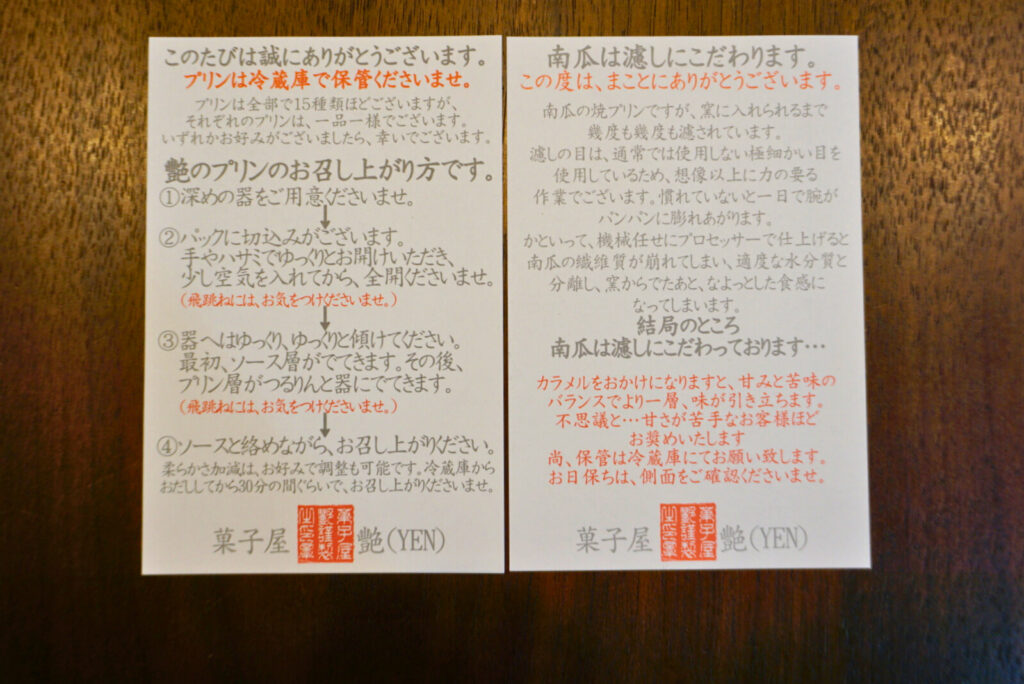 このたびは誠にありがとうございます。
プリンは冷蔵庫で保管くださいませ。
プリンは全部で15種類ほどございますが、
それぞれのプリンは、一品一様でございます。
いずれかお好みがございましたら、幸いでございます。
艶のプリンのお召し上がり方です。
①深めの器をご用意くださいませ。
②パックに切込みがございます。
手やハサミでゆっくりとお開けいただき、
少し空気を入れてから、全開くださいませ。
(飛跳ねには、お気をつけくださいませ。)
③器へはゆっくり、ゆっくりと傾けてください。
最初、ソース層がでてきます。その後、
プリン層がつるりんと器にでてきます。
(飛跳ねには、お気をつけくださいませ。)
④ソースと絡めながら、お召し上がりください。
柔らかさ加減は、お好みで調整も可能です。冷蔵庫から
おだししてから30分の間ぐらいで、お召し上がりくださいませ。
菓子屋 艶(YEN)
南瓜は濾しにこだわります。
この度は、まことにありがとうございます。
南瓜の焼プリンですが、窯に入れられるまで
幾度も幾度も濾されています。
濾しの目は、通常では使用しない極細かい目を
使用しているため、想像以上に力の要る
作業でございます。慣れていないと一日で腕が
パンパンに膨れあがります。
かといって、機械任せにプロセッサーで仕上げると
南瓜の繊維質が崩れてしまい、適度な水分質と
分離し、窯からでたあと、なよっとした食感に
なってしまいます。
結局のところ
南瓜は濾しにこだわっております…
カラメルをおかけになりますと、甘みと苦味の
バランスでより一層、味が引き立ちます。
不思議と…甘さが苦手なお客様ほど
お奨めいたします
尚、保管は冷蔵庫にてお願い致します。
お日保ちは、側面をご確認くださいませ。
菓子屋 艶(YEN)